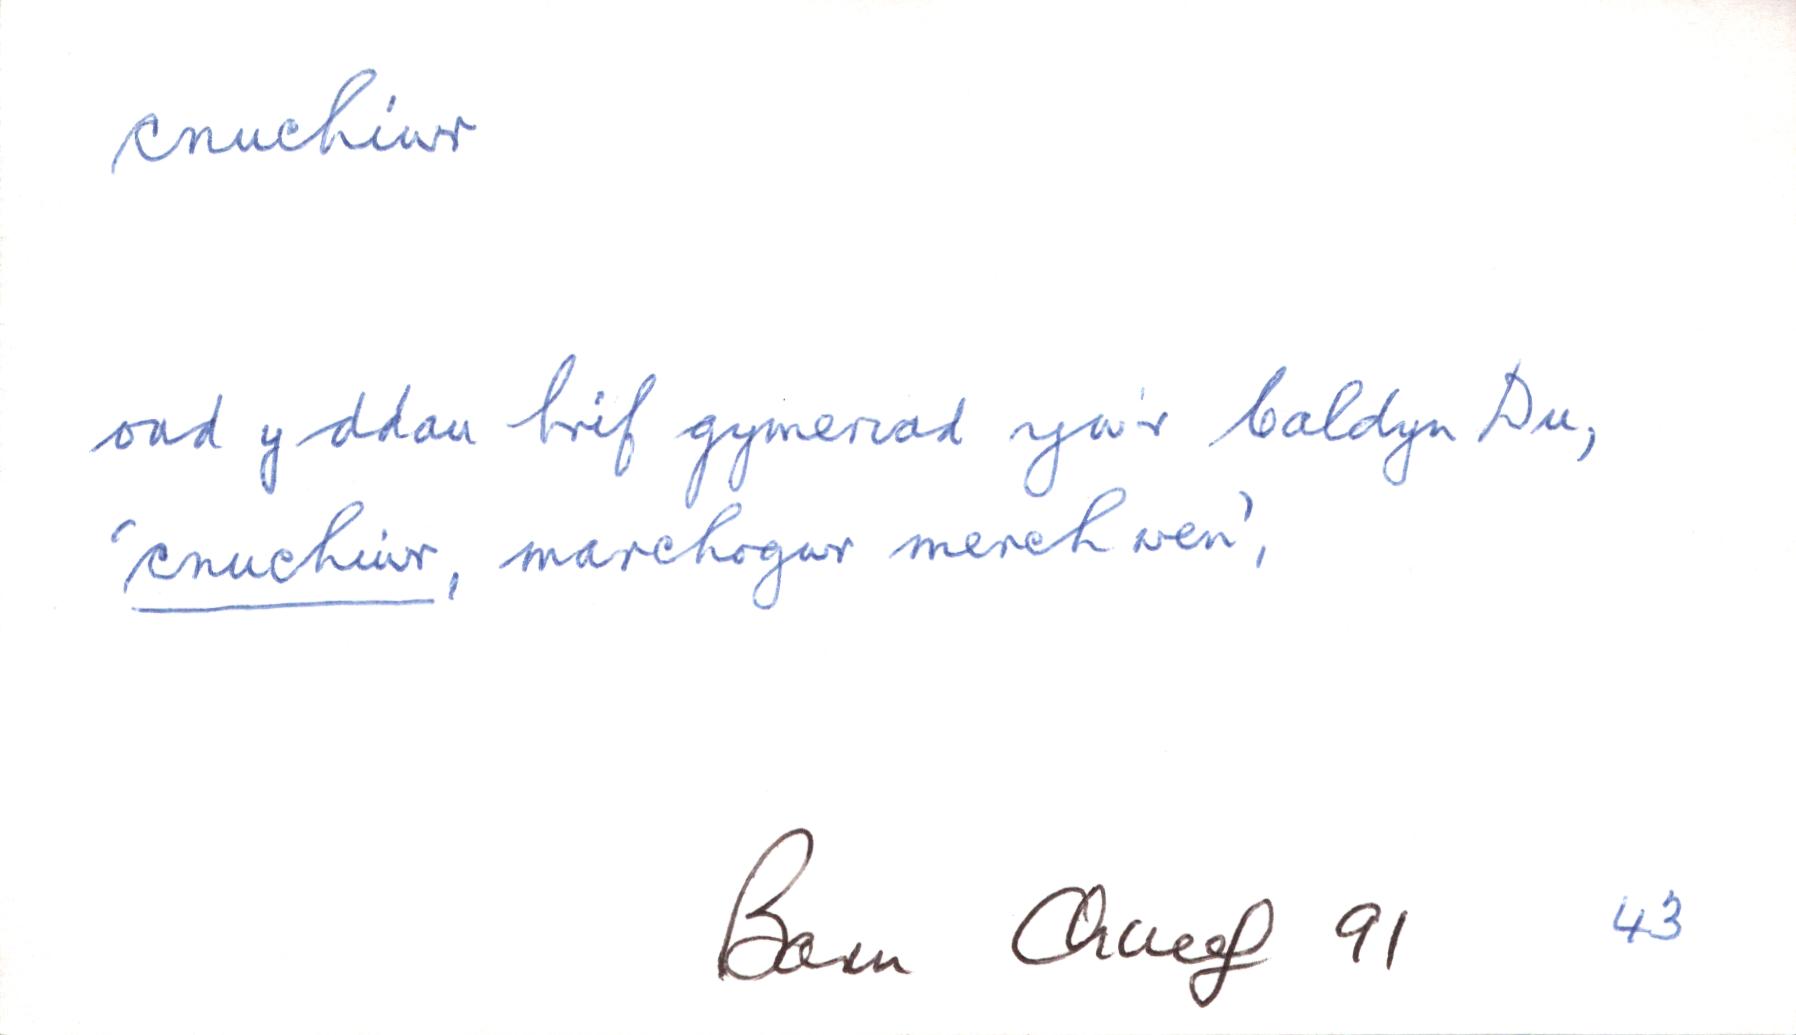 cnuchiwr
ond y ddau brif gymeriad yw'r Caldyn Du,
'cnuchiwr, marchogwr merch wen',
Barn Chwef 91 43